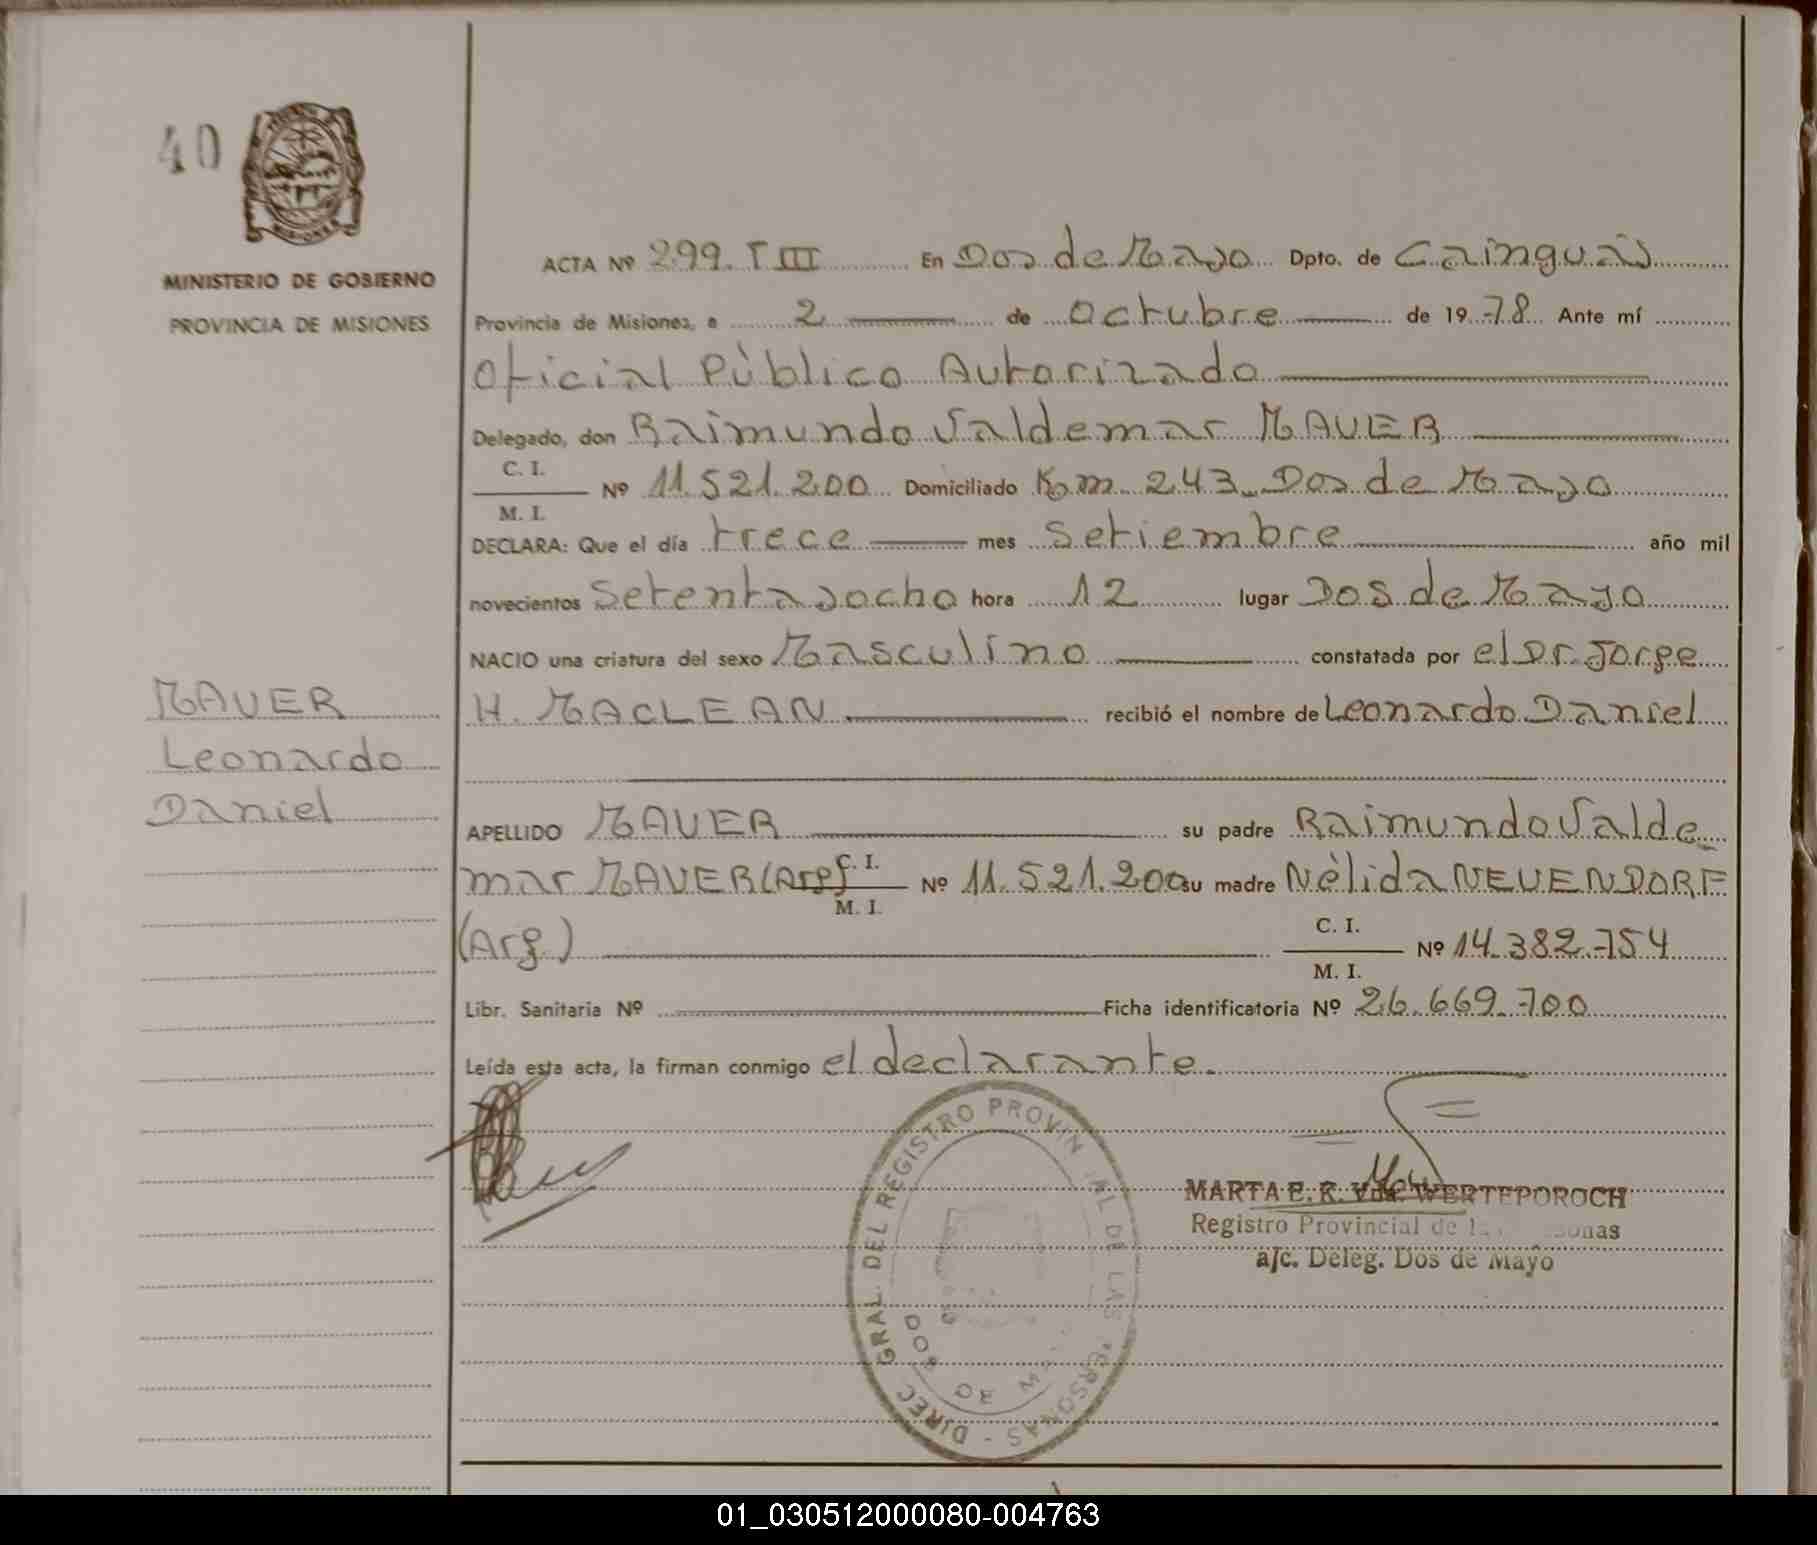 40
MINISTERIO DE GOBIERNO
PROVINCIA DE MISIONES
ACTA Nº 299. T III En Dos de Mayo Dpto. de Cainguás
Provincia de Misiones, a 2 de Octubre de 1978 Ante mí
Oficial Pùblico Autorizado
Delegado, don Raimundo Valdemar MAUER
C. I.
M. I.
Nº 11.521.200 Domiciliado Km 243 Dos de Mayo
DECLARA: Que el día trece mes Setiembre año mil
novecientos Setenta y ocho hora 12 lugar Dos de Mayo
NACIO una criatura del sexo Masculino constatada por el Dr. Jorge
H. MACLEAN recibió el nombre de Leonardo Daniel
MAUER
Leonardo
Daniel
APELLIDO MAUER su padre Raimundo Valde
mar MAUER (Arg) C. I. M. I. Nº 11.521.200 su madre Nèlida NEUENDORF
(Arg) C. I. M. I. Nº 14.382.754
Libr. Sanitaria Nº Ficha identificatoria Nº 26.669.700
Leída esta acta, la firman conmigo el declarante.
DIREC GRAL. DEL REGISTRO PROVIN IAL DE LAS PERSONAS -
MARTA E. R. Vda. WERTEPOROCH
Registro Provincial de
a/c. Deleg. Dos de Mayo
01_030512000080-004763